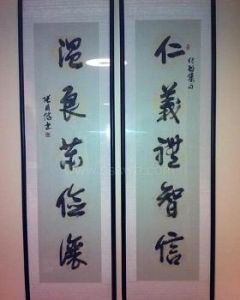 仁義禮智信
溫良恭儉讓